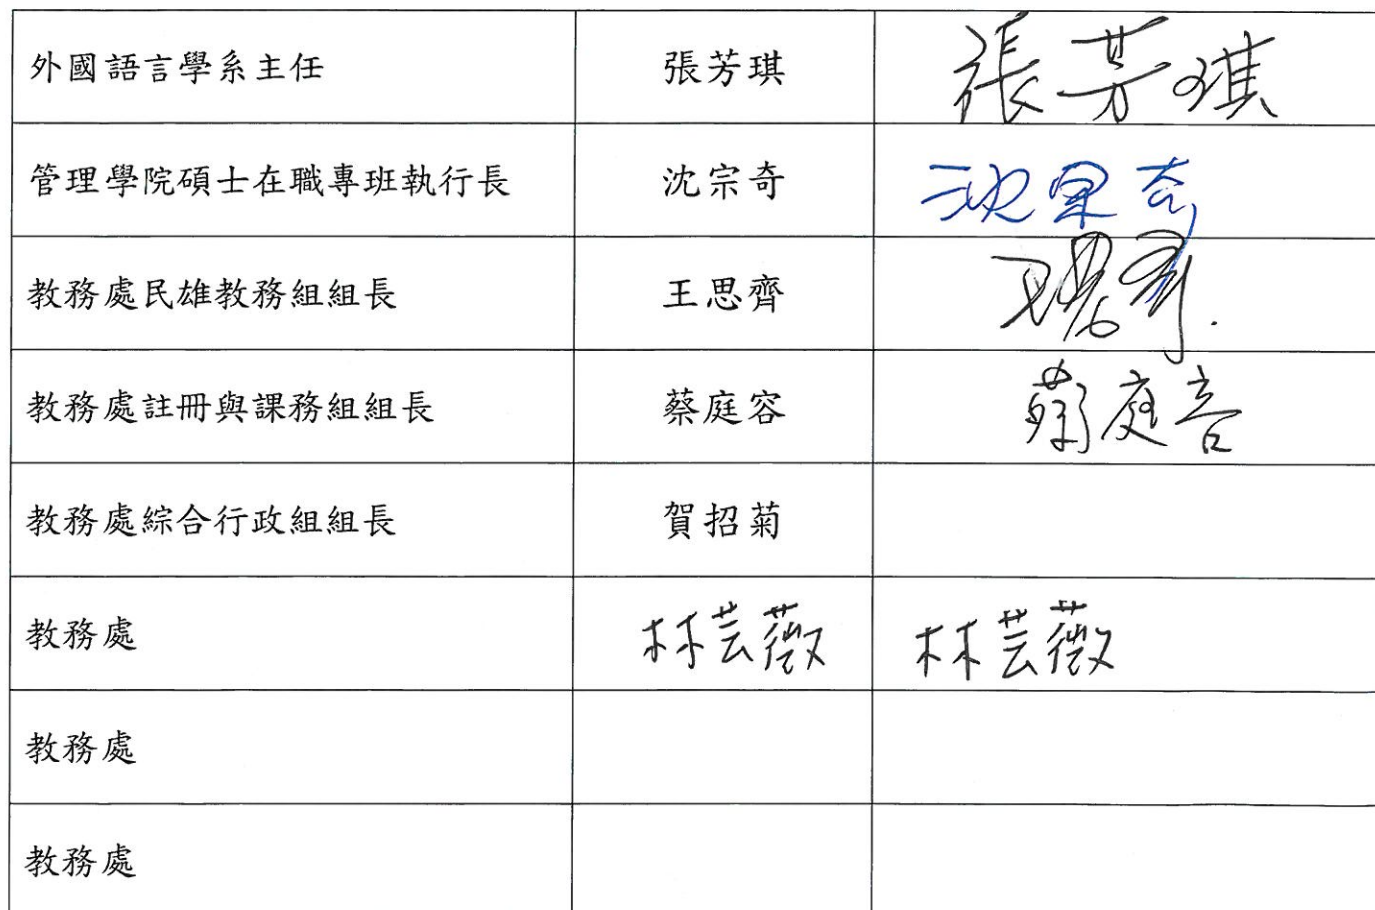 外國語言學系主任 張芳琪 張芳琪
管理學院碩士在職專班執行長 沈宗奇 沈宗奇
教務處民雄教務組組長 王思齊 王思齊
教務處註冊與課務組組長 蔡庭容 蔡庭容
教務處綜合行政組組長 賀招菊
教務處 林芸薇 林芸薇
教務處
教務處